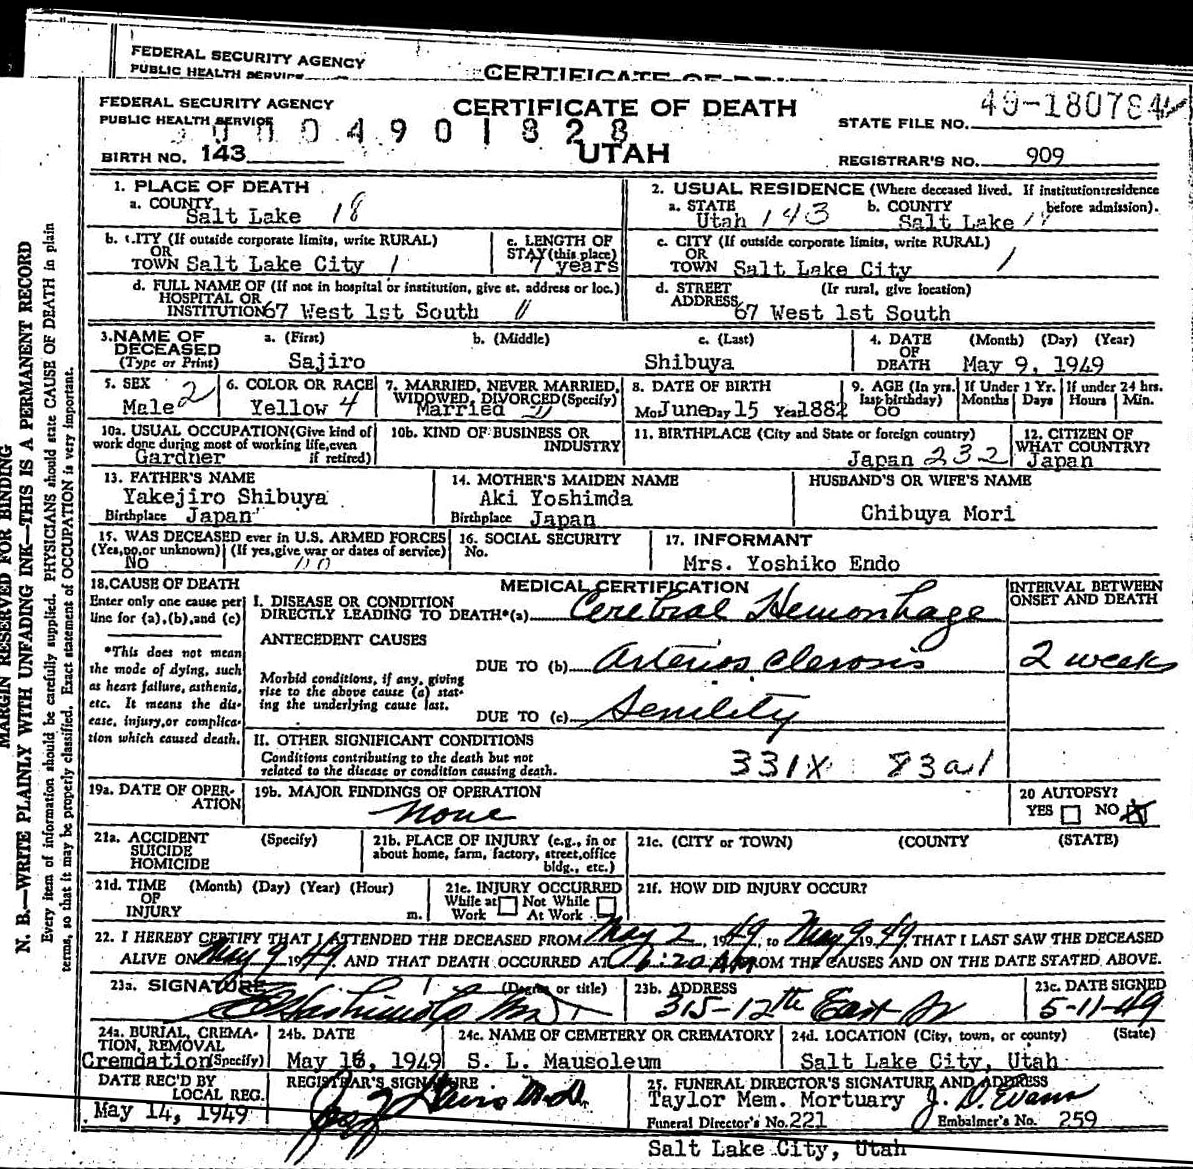 FEDERAL SECURITY AGENCY
PUBLIC HEALTH SERVICE
CERTIFICATE OF
FEDERAL SECURITY AGENCY
PUBLIC HEALTH SERVICE
CERTIFICATE OF DEATH
49-180784
STATE FILE NO.
0004901828
BIRTH NO. 143
UTAH
REGISTRAR'S NO. 909
MARGIN RESERVED FOR BINDING
N. B.—WRITE PLAINLY WITH UNFADING INK—THIS IS A PERMANENT RECORD
Every item of information should be carefully supplied. PHYSICIANS should state CAUSE OF DEATH in plain
terms, so that it may be properly classified. Exact statement of OCCUPATION is very important.
1. PLACE OF DEATH
a. COUNTY
Salt Lake 18
2. USUAL RESIDENCE (Where deceased lived. If institution:residence
before admission).
a. STATE
Utah 143
b. COUNTY
Salt Lake
b. CITY (If outside corporate limits, write RURAL)
OR
TOWN Salt Lake City 1
c. LENGTH OF
STAY (this place)
7 years
c. CITY (If outside corporate limits, write RURAL)
OR
TOWN Salt Lake City 1
d. FULL NAME OF (If not in hospital or institution, give st. address or loc.)
HOSPITAL OR
INSTITUTION 67 West 1st South
d. STREET (If rural, give location)
ADDRESS 67 West 1st South
3. NAME OF
DECEASED
(Type or Print)
a. (First)
Sajiro
b. (Middle)
c. (Last)
Shibuya
4. DATE
OF
DEATH
(Month) (Day) (Year)
May 9, 1949
5. SEX
Male 2
6. COLOR OR RACE
Yellow 4
7. MARRIED, NEVER MARRIED,
WIDOWED, DIVORCED (Specify)
Married
8. DATE OF BIRTH
Mo. June Day 15 Year 1882
9. AGE (In yrs.
last birthday)
66
If Under 1 Yr.
Months Days
If under 24 hrs.
Hours Min.
10a. USUAL OCCUPATION (Give kind of
work done during most of working life, even
if retired)
Gardner
10b. KIND OF BUSINESS OR
INDUSTRY
11. BIRTHPLACE (City and State or foreign country)
Japan 232
12. CITIZEN OF
WHAT COUNTRY?
Japan
13. FATHER'S NAME
Yakejiro Shibuya
Birthplace Japan
14. MOTHER'S MAIDEN NAME
Aki Yoshimda
Birthplace Japan
HUSBAND'S OR WIFE'S NAME
Chibuya Mori
15. WAS DECEASED ever in U.S. ARMED FORCES
(Yes, no, or unknown) (If yes, give war or dates of service)
No
16. SOCIAL SECURITY
No.
17. INFORMANT
Mrs. Yoshiko Endo
18. CAUSE OF DEATH
Enter only one cause per
line for (a), (b), and (c)
*This does not mean
the mode of dying, such
as heart failure, asthenia,
etc. It means the dis-
ease, injury, or complica-
tion which caused death.
MEDICAL CERTIFICATION
INTERVAL BETWEEN
ONSET AND DEATH
I. DISEASE OR CONDITION
DIRECTLY LEADING TO DEATH*(a) Cerebral Hemorrhage
ANTECEDENT CAUSES
DUE TO (b) Arterios clerosis
2 weeks
Morbid conditions, if any, giving
rise to the above cause (a) stat-
ing the underlying cause last.
DUE TO (c) Senility
II. OTHER SIGNIFICANT CONDITIONS
Conditions contributing to the death but not
related to the disease or condition causing death.
331X 83a1
19a. DATE OF OPER-
ATION
19b. MAJOR FINDINGS OF OPERATION
None
20 AUTOPSY?
YES NO
21a. ACCIDENT
SUICIDE
HOMICIDE
(Specify)
21b. PLACE OF INJURY (e.g., in or
about home, farm, factory, street, office
bldg., etc.)
21c. (CITY or TOWN) (COUNTY) (STATE)
21d. TIME
OF
INJURY
(Month) (Day) (Year) (Hour)
m.
21e. INJURY OCCURRED
While at Work Not While At Work
21f. HOW DID INJURY OCCUR?
22. I HEREBY CERTIFY THAT I ATTENDED THE DECEASED FROM May 2, 1949, to May 9 1949 THAT I LAST SAW THE DECEASED
ALIVE ON May 9 1949. AND THAT DEATH OCCURRED AT 6:20 AM FROM THE CAUSES AND ON THE DATE STATED ABOVE.
23a. SIGNATURE (Degree or title)
Hashimoto MD
23b. ADDRESS
315-12th East
23c. DATE SIGNED
5-11-49
24a. BURIAL, CREMA-
TION, REMOVAL
(Specify)
Cremdation
24b. DATE
May 16, 1949
24c. NAME OF CEMETERY OR CREMATORY
S. L. Mausoleum
24d. LOCATION (City, town, or county) (State)
Salt Lake City, Utah
DATE REC'D BY
LOCAL REG.
May 14, 1949
REGISTRAR'S SIGNATURE
M.D.
25. FUNERAL DIRECTOR'S SIGNATURE AND ADDRESS
Taylor Mem. Mortuary J. D. Evans
Funeral Director's No. 221 Embalmer's No. 259
Salt Lake City, Utah